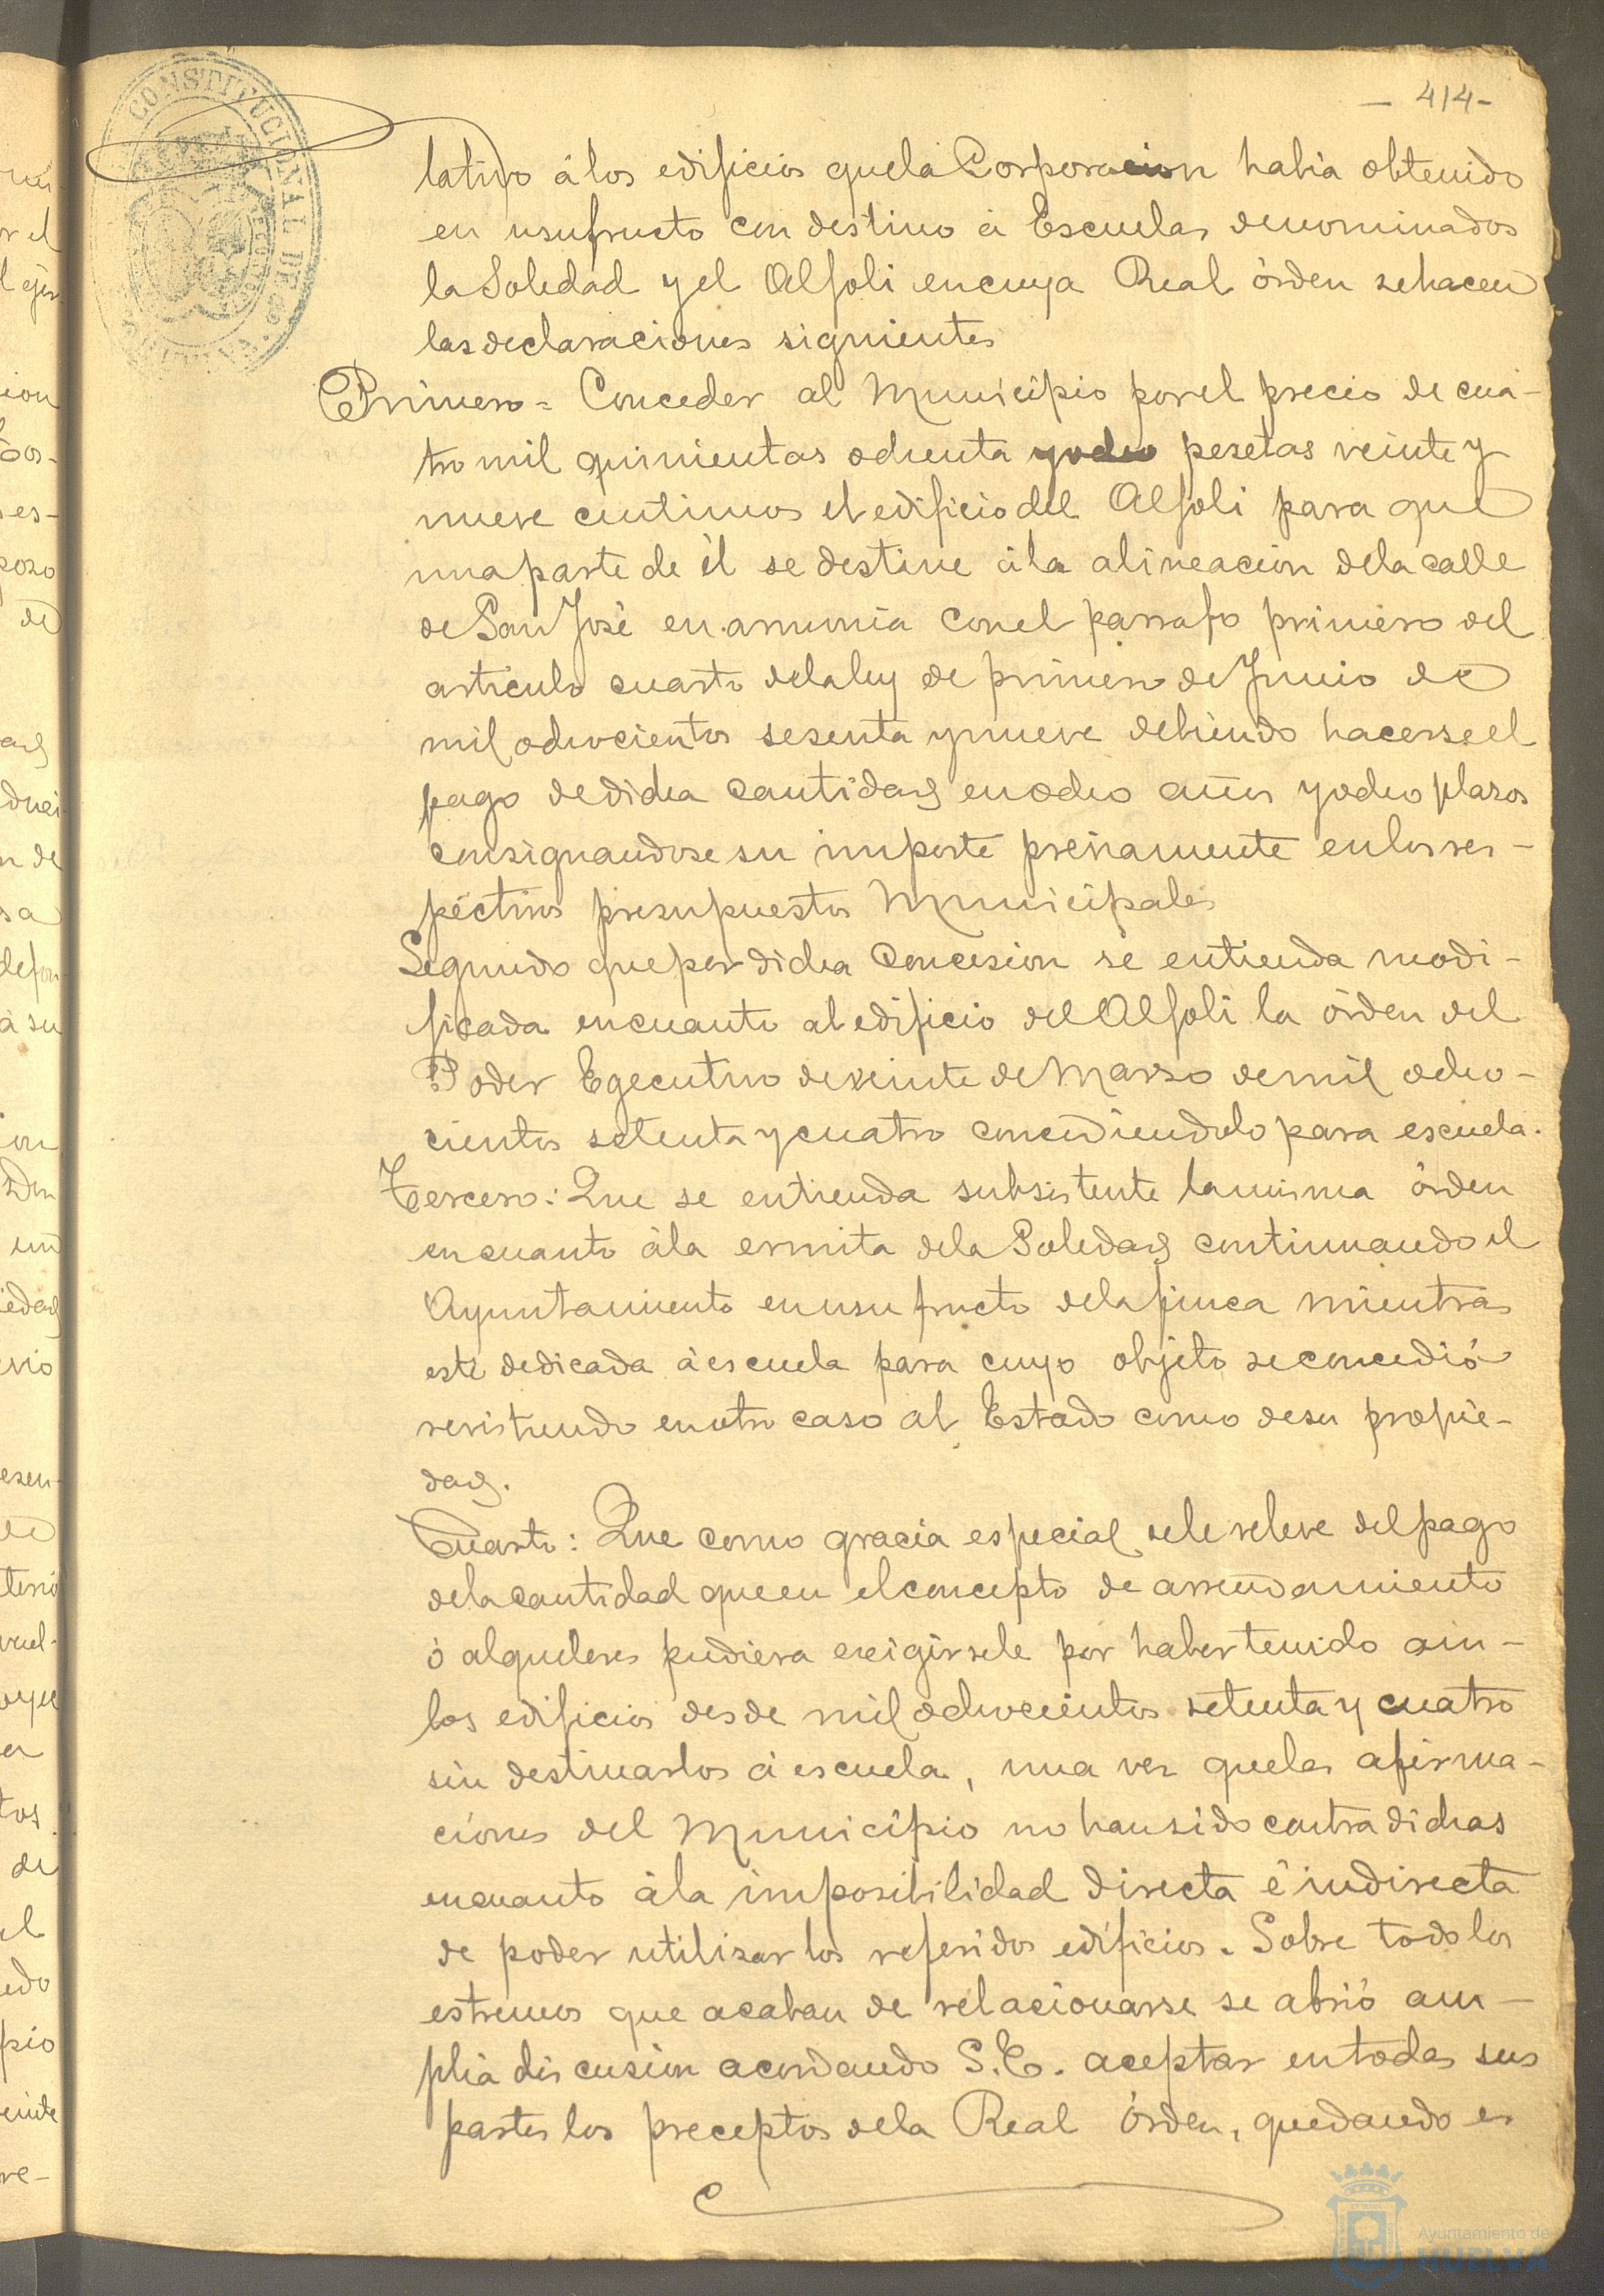 - 414 -
CONSTITUCIONAL DE
lativo á los edificios que la Corporacion habia obtenido
en usufructo con destino á Escuelas denominados
la Soledad y el Alfoli en cuya Real órden se hacen
las declaraciones siguientes
Primero = Conceder al Municipio por el precio de cua-
tro mil quinientas ochenta y ocho pesetas veinte y
nueve centimos el edificio del Alfoli para que
una parte de él se destine á la alineacion de la calle
de San José en armonia con el parrafo primero del
articulo cuarto de la ley de primero de Junio de
mil ochocientos sesenta y nueve debiendo hacerse el
pago de dicha cantidad en ocho años y ocho plasos
consignandose su importe préviamente en los res-
pectivos presupuestos Municipales
Segundo que por dicha concesion se entienda modi-
ficada en cuanto al edificio del Alfoli la órden del
Poder Egecutivo de veinte de Marzo de mil ocho-
cientos setenta y cuatro concediendolo para escuela.
Tercero: Que se entienda subsistente la misma órden
en cuanto á la ermita de la Soledad continuando el
Ayuntamiento en usufructo de la finca mientras
esté dedicada á escuela para cuyo objeto se concedió
revistiendo en otro caso al Estado como de su propie-
dad.
Cuarto: Que como gracia especial se le releve del pago
de la cantidad que en el concepto de arrendamiento
ó alquileres pudiera exigirsele por haber tenido am-
bos edificios desde mil ochocientos setenta y cuatro
sin destinarlos á escuela, una vez que las afirma-
ciones del Municipio no han sido contradichas
en cuanto á la imposibilidad directa é indirecta
de poder utilizar los referidos edificios. Sobre todo los
estremos que acaban de relacionarse se abrió am-
plia discusion acordando S.E. aceptar en todas sus
partes los preceptos de la Real órden, quedando es
Ayuntamiento de
HUELVA